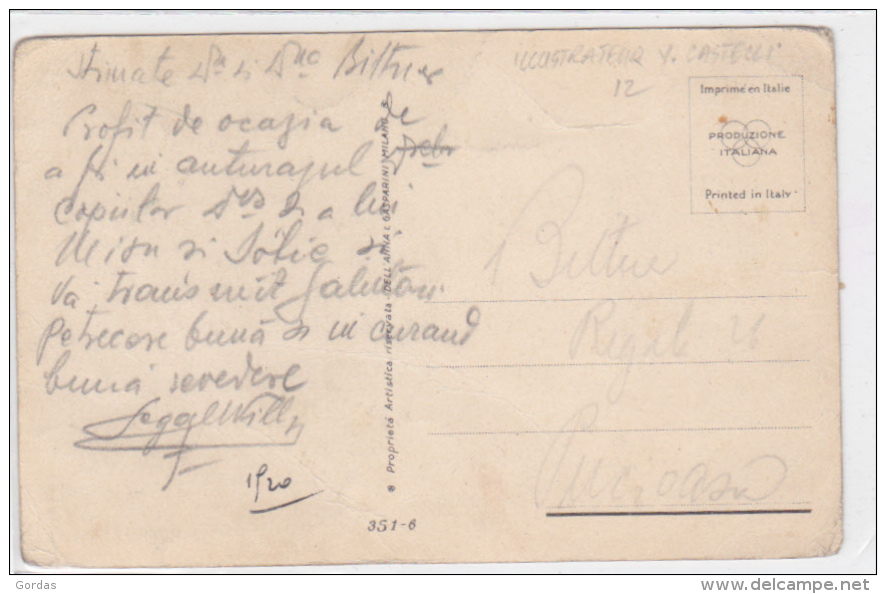 Stimate Dle si Dna Bittner
Profit de ocazia de
a fi in anturajul
copiilor Dvs si a lui
Misu si Sofie si
Vă transmit Salutări
Petrecere bună si in curand
bună revedere
Segal Willy
1920
ILLUSTRATEUR V. CASTELLI
12
Imprimé en Italie
PRODUZIONE
ITALIANA
Printed in Italy
Proprietà Artistica riservata - DELL'ANNA & GASPARINI / MILANO
351-6
Bittner
Pucioasa
delcampe.net
Gordas